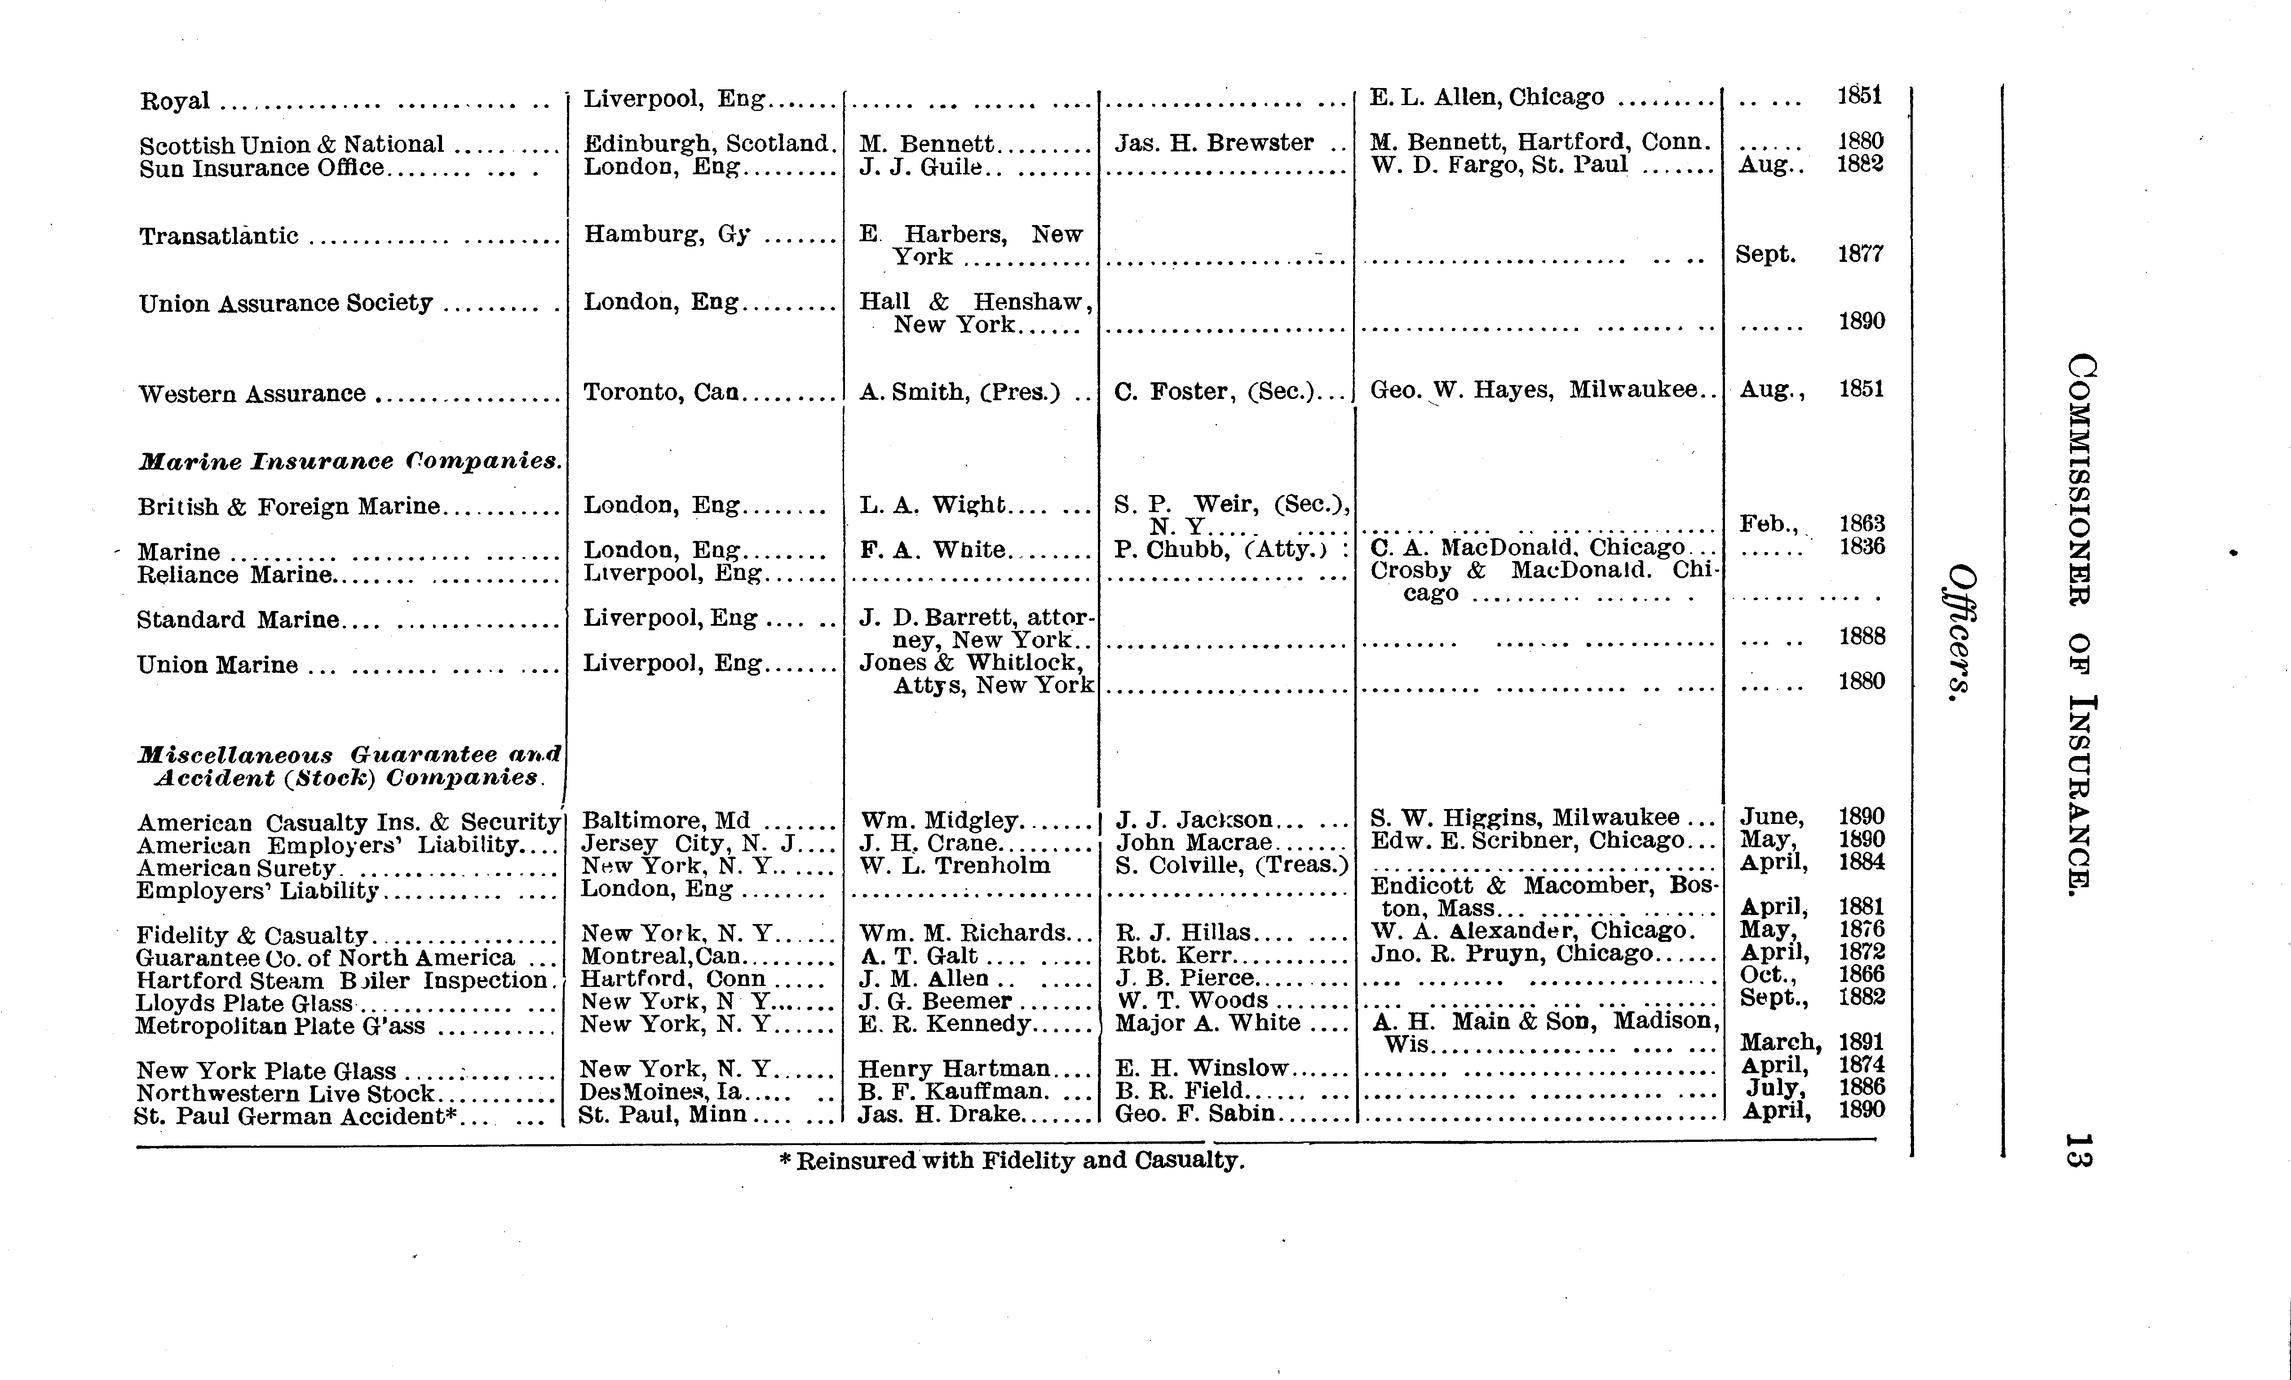 COMMISSIONER OF INSURANCE. 13
Officers.
Royal ... Liverpool, Eng ... E. L. Allen, Chicago ... 1851
Scottish Union & National ... Edinburgh, Scotland. M. Bennett ... Jas. H. Brewster .. M. Bennett, Hartford, Conn. ... 1880
Sun Insurance Office ... London, Eng ... J. J. Guile ... W. D. Fargo, St. Paul ... Aug.. 1882
Transatlantic ... Hamburg, Gy ... E. Harbers, New
York ... Sept. 1877
Union Assurance Society ... London, Eng ... Hall & Henshaw,
New York ... 1890
Western Assurance ... Toronto, Can ... A. Smith, (Pres.) .. C. Foster, (Sec.)... Geo. W. Hayes, Milwaukee.. Aug., 1851
Marine Insurance Companies.
British & Foreign Marine ... London, Eng ... L. A. Wight ... S. P. Weir, (Sec.),
N. Y ... Feb., 1863
Marine ... London, Eng ... F. A. White ... P. Chubb, (Atty.) : C. A. MacDonald, Chicago ... 1836
Reliance Marine ... Liverpool, Eng ... Crosby & MacDonald. Chi-
cago ...
Standard Marine ... Liverpool, Eng ... J. D. Barrett, attor-
ney, New York.. ... 1888
Union Marine ... Liverpool, Eng ... Jones & Whitlock,
Attys, New York ... 1880
Miscellaneous Guarantee and
Accident (Stock) Companies.
American Casualty Ins. & Security Baltimore, Md ... Wm. Midgley ... J. J. Jackson ... S. W. Higgins, Milwaukee ... June, 1890
American Employers' Liability.... Jersey City, N. J.... J. H. Crane ... John Macrae ... Edw. E. Scribner, Chicago... May, 1890
American Surety ... New York, N. Y ... W. L. Trenholm S. Colville, (Treas.) ... April, 1884
Employers' Liability ... London, Eng ... Endicott & Macomber, Bos-
ton, Mass ... April, 1881
Fidelity & Casualty ... New York, N. Y ... Wm. M. Richards... R. J. Hillas ... W. A. Alexander, Chicago. May, 1876
Guarantee Co. of North America ... Montreal, Can ... A. T. Galt ... Rbt. Kerr ... Jno. R. Pruyn, Chicago ... April, 1872
Hartford Steam Boiler Inspection. Hartford, Conn ... J. M. Allen ... J. B. Pierce ... Oct., 1866
Lloyds Plate Glass ... New York, N Y ... J. G. Beemer ... W. T. Woods ... Sept., 1882
Metropolitan Plate G'ass ... New York, N. Y ... E. R. Kennedy ... Major A. White .... A. H. Main & Son, Madison,
Wis ... March, 1891
New York Plate Glass ... New York, N. Y ... Henry Hartman.... E. H. Winslow ... April, 1874
Northwestern Live Stock ... DesMoines, Ia ... B. F. Kauffman. ... B. R. Field ... July, 1886
St. Paul German Accident* ... St. Paul, Minn ... Jas. H. Drake ... Geo. F. Sabin ... April, 1890
* Reinsured with Fidelity and Casualty.